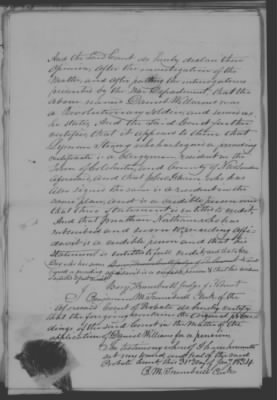 And the said Court do hereby declare their
opinion, after the investigation of the
Matter, and after putting the interrogatories
prescribed by the War Department, that the
above named Daniel Williams was
a Revolutionary soldier, and served as
he states, And the said Court further
certifies that it appears to them that
Lyman Strong who has signed a preceding
certificate is a Clergyman resident in the
Town of Colchester, and County of New London
aforesaid, and that John Isham who has
also signed the same is a resident in the
same place, and is a credible person and
that their statement is entitled to credit.
And that Jonathan
subscribed and sworn to the preceding affi-
davit is a credible person and that his
statement is entitled to full credit
Judge of Probate
I, Benjamin M. Trumbull Clerk of the
aforesaid Court of Probate do hereby certify
that the foregoing contains the Original procee-
dings of the said Court in the Matter of the
application of Daniel Williams for a pension
In testimony whereof I have hereunto
set my hand and seal of the said
Probate Court this 31st day of 1834
B. M. Trumbull Clerk